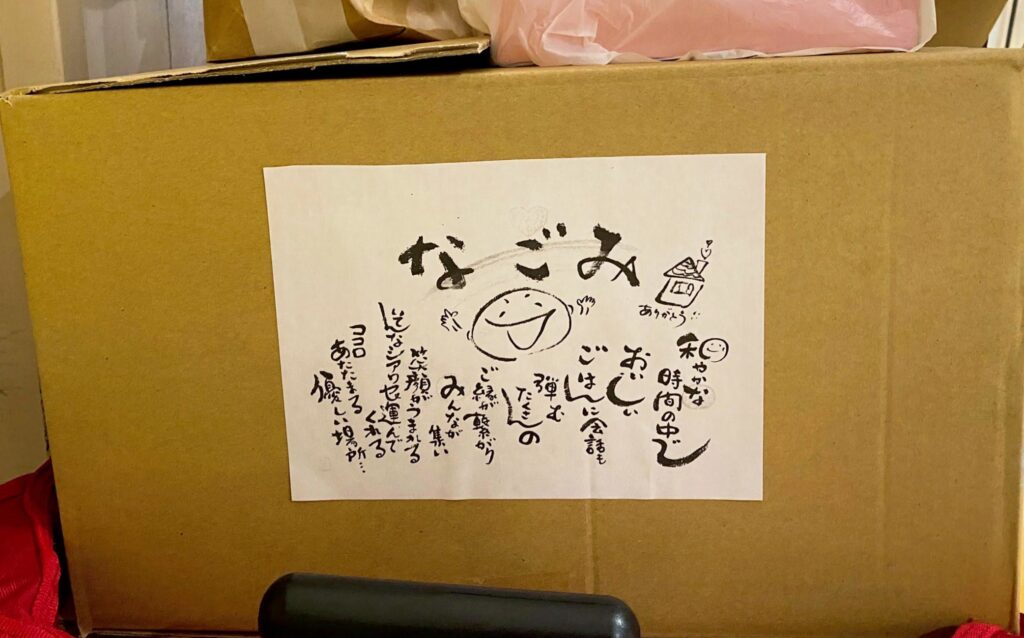 なごみ
ありがとう!!
和やかな
時間の中で
おいしい
ごはんに会話も
弾む
たくさんの
ご縁が繋がり
みんなが
集い
笑顔がうまれる
いろんなシアワセ運んで
くれる
ココロ
あたたまる
優しい場所…